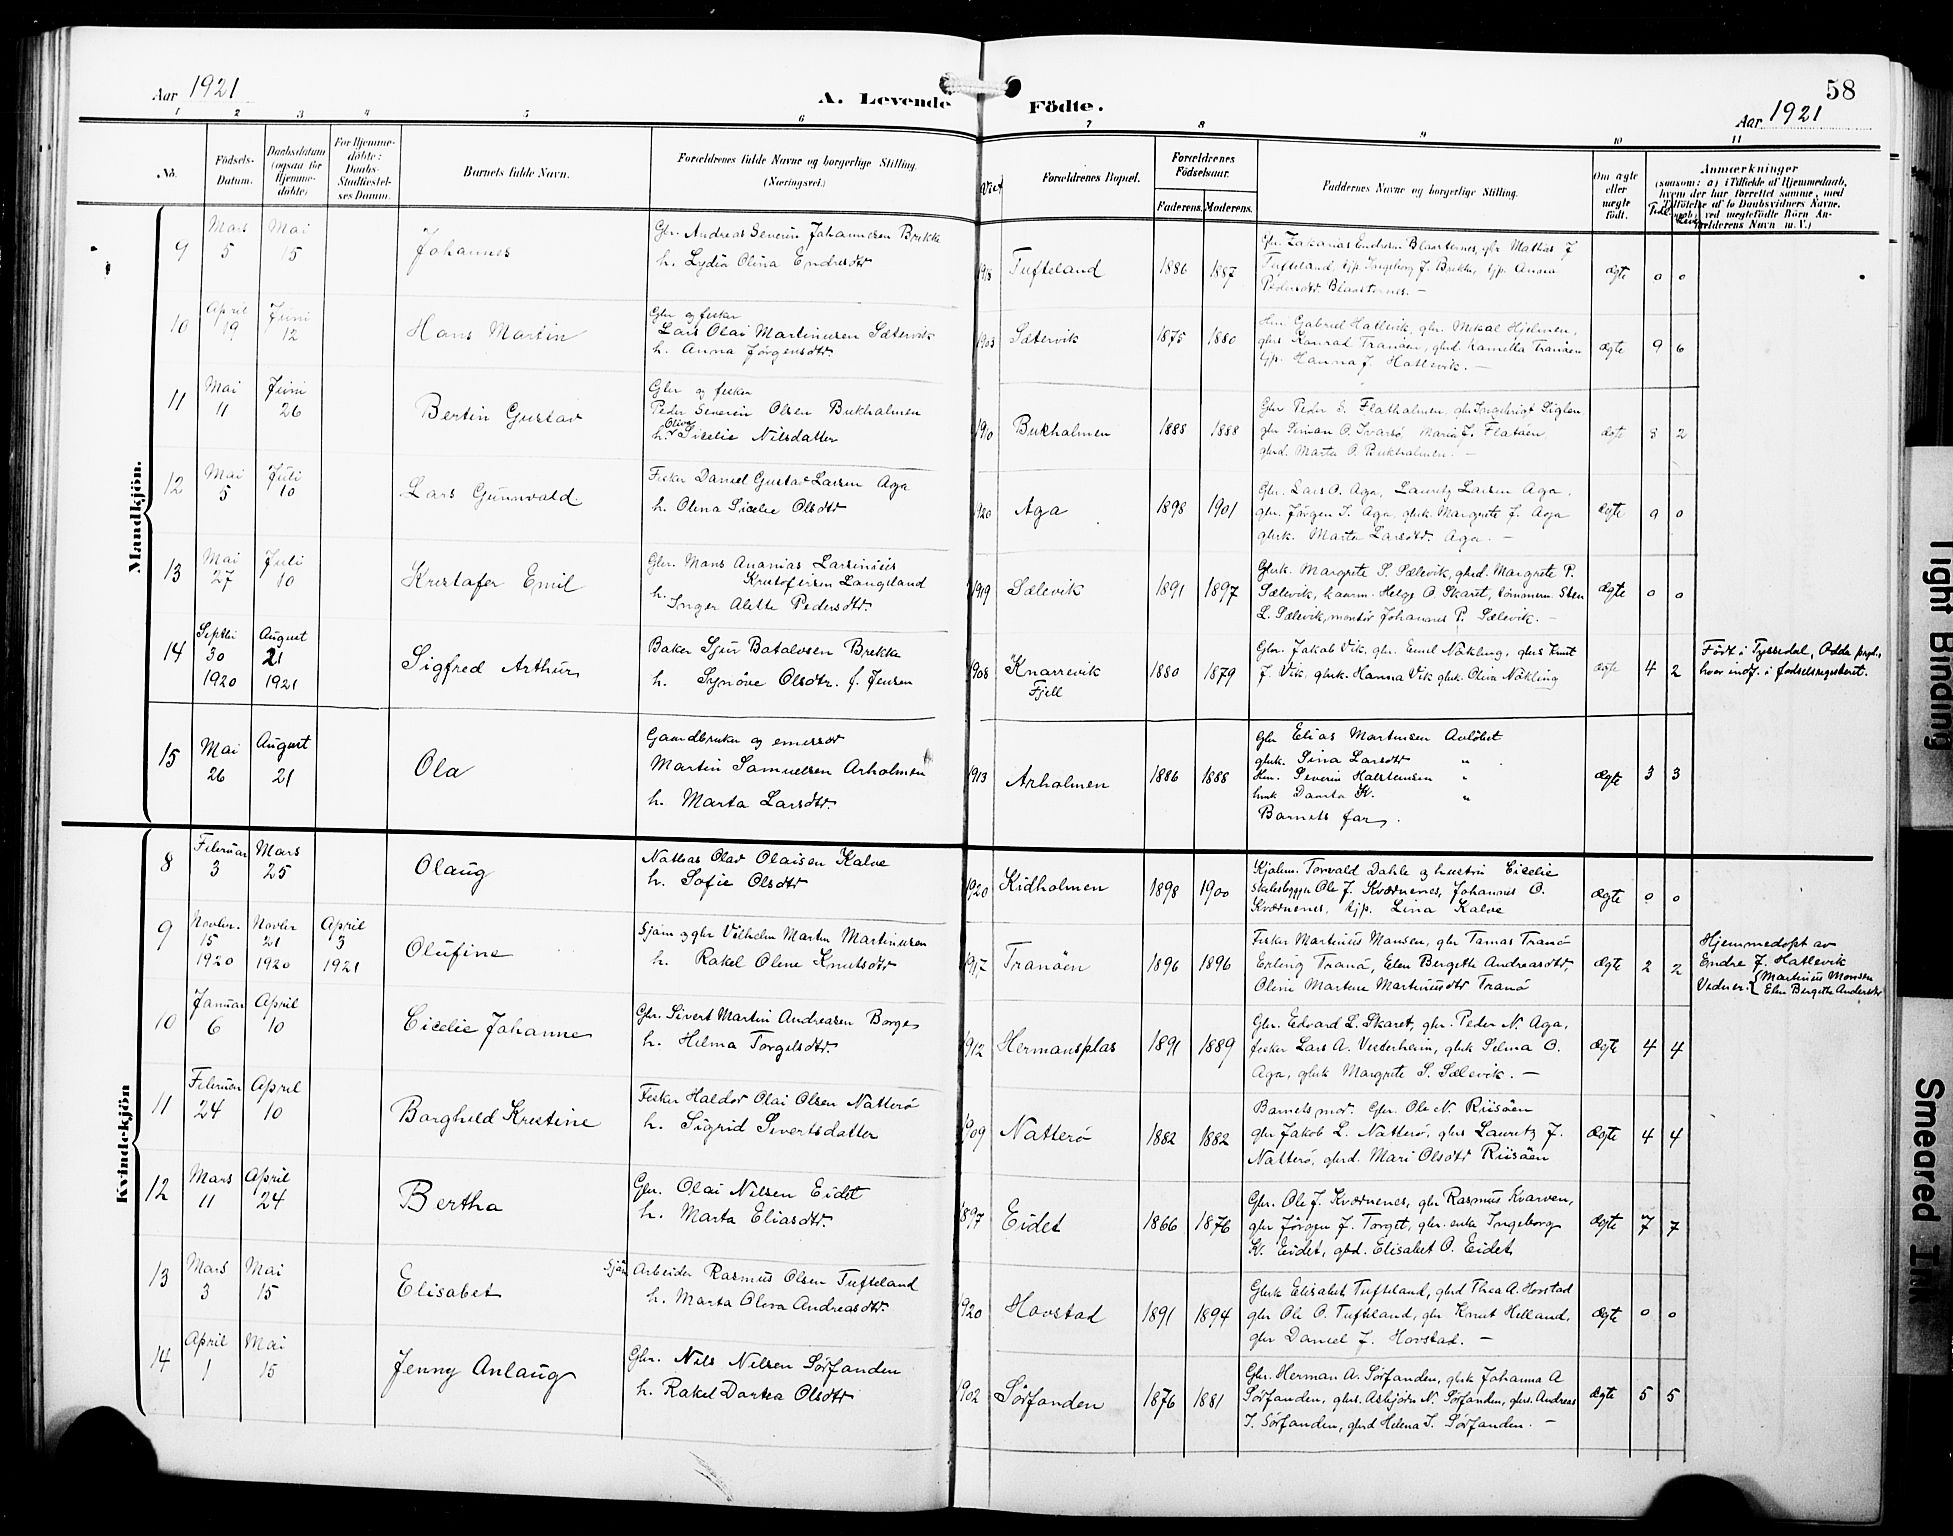 Aar 1921
A. Levende Födte.
58
Aar 1921
1 2 3 4 5 6 7 8 9 10 11
No.
Födsels-Datum.
Daabsdatum (ogsaa for Hjemme-döbte.)
For Hjemme-döbte: Daabs-Stadfæstel-ses Datum.
Barnets fulde Navn.
Forældrenes fulde Navne og borgerlige Stilling. (Næringsvei.)
Viet
Forældrenes Bopæl.
Forældrenes Födselsaar.
Faderens. Moderens.
Faddernes Navne og borgerlige Stilling.
Om ægte eller uægte födt.
Anmærkninger
(saasom: a) i Tilfælde af Hjemmedaab,
hvem der har forrettet samme, med
Tilföielse af to Daabsvidners Navne,
b) ved uægtefödte Börn An-
Mandkjön.
9 Mars 5 Mai 15 Johannes
Gbr. Andreas Severin Johannesen Brekke
h. Lydia Olina Endresdtr
1918 Tufteland 1886 1887
Gbr. Zakarias Endresen Blaasternes, gbr Mathias J
Tufteland, tjp. Ingeborg J. Brekke, tjp. Anna
Pedersdtr. Blaasternes. –
ægte 0 0
10 April 19 Juni 12 Hans Martin
Gbr og fisker
Lars Olai Martinusen Sætervik
h. Anna Jørgensdtr
1903 Sætervik 1875 1880
Hm. Gabriel Hatlevik, gbr. Mikal Hjelmen,
gbrs Konrad Tranøen, gbrd. Kamilla Tranøen
tjp. Hanna J. Hatlevik. –
ægte 9 6
11 Mai 11 Juni 26 Bertin Gustav
Gbr og fisker
Peder Severin Olsen Bukholmen
h. Oliva Sicelie Nilsdatter
1910 Bukholmen 1888 1888
Gbr Peder S. Flatholmen, gbr Ingebrigt Siglen
gbr Simon O. Ivarsø, Maria J. Flatøen,
gbrd. Marta O. Bukholmen. –
ægte 3 2
12 Mai 5 Juli 10 Lars Gunnvald
Fisker Daniel Gustav Larsen Aga
h. Olena Sicelie Olsdtr
1920 Aga 1898 1901
Gbr. Lars O. Aga, Lauritz Larsen Aga,
gbr. Jørgen I. Aga, gbrk. Margrete J. Aga
gbrk. Marta Larsdtr. Aga. –
ægte 0 0
13 Mai 27 Juli 10 Kristafer Emil
Gbr. Mons Ananias Larsinius
Kristofersen Langeland
h. Inger Alette Pedersdtr
1919 Sælevik 1891 1897
Gbrk. Margrete S. Sælevik, gbrd. Margrete P.
Sælevik, Helge O. Skaret, tömmerm. Sten
L. Sælevik, montør Johannes P. Sælevik. –
ægte 0 0
14 Septbr 30 1920 August 21 1921 Sigfred Arthur
Baker Sjur Batalvsen Brekke
h. Synøve Olsdtr. f. Jensen
1908 Knarrevik Fjell 1880 1879
Gbr. Jakob Vik, gbr. Emil Nökling, gbrs Knut
J. Vik, gbrk. Hanna Vik gbrk. Oliva Nökling
ægte 4 2
Född i Tyssedal, Odda prgd.,
hvor indf. i fødselsregisteret.
15 Mai 26 August 21 Ola
Gaardbruker og
Martin Samuelsen Arholmen
h. Marta Larsdtr.
1913 Arholmen 1886 1888
Gbr Elias Martinsen Avløbet
gbrk. Sina Larsdtr "
Hm. Severin Halstensen "
hmk Daarta K. "
Barnets far.
ægte 3 3
Kvindekjön
8 Februar 3 Mars 25 Olaug
Mathias Olav Olaisen Kalve
h. Sofie Olsdtr
1920 Kidholmen 1898 1900
Kjølem. Torvald Dahle og hustru Cicelie
skibsbygger Ole J. Kværnenes, Johannes O.
Kværnenes, tjp. Lina Kalve
ægte 0 0
9 Novbr. 15 1920 Novbr 21 1920 April 3 1921 Olufine
Sjöm og gbr Vilhelm Martin Martinusen
h. Rakel Olene Knutsdtr
1917 Tranøen 1896 1896
Fisker Martinius Monsen, gbr Tomas Tranø
Erling Tranø, Elen Bergethe Andreasdtr,
Oline Martine Martinusdtr Tranø
ægte 2 2
Hjemmedøpt av
Endre J. Hatlevik
Vidner: {Martinius Monsen
Elen Bergethe Andersdtr
10 Januar 6 April 10 Cicelie Johanne
Gbr. Sivert Martin Andreasen Borge
h. Helma Torgelsdtr.
1912 Hermansplas 1891 1889
Gbr. Edvard L. Skaret, gbr. Peder N. Aga,
fisker Lars A. Vesterheim, gbrk Selma O.
Aga, gbrk Margrete S. Sælevik. –
ægte 4 4
11 Februar 24 April 10 Borghild Kristine
Fisker Haldor Olai Olsen Natterö
h. Sigrid Sivertsdatter
1909 Natterö 1882 1882
Barnets mor. Gbr. Ole N. Riisöen
gbr Jakob L. Natterö, gbrs Lauritz J.
Natterö, gbrd. Mari Olsdtr Riisöen
ægte 4 4
12 Mars 11 April 24 Bertha
Gbr. Olai Nilsen Eidet
h. Marta Eliasdtr.
1897 Eidet 1866 1876
Gbr. Ole J. Kværnenes, gbr Rasmus Kvarven,
gbr Jörgen J. Torget, gbr. enke Ingeborg
K. Eidet, gbd. Elisabet O. Eidet
ægte 7 7
13 Mars 3 Mai 15 Elisabet
Sjau Arbeider Rasmus Olsen Tufteland
h. Marta Oliva Andreasdtr.
1920 Hovstad 1891 1894
Gbrk Elisabet Tufteland, gbrd Thea A. Hovstad
gbr Ole O. Tufteland, gbr Knut Helland,
gbr Daniel J. Hovstad. –
ægte 0 0
14 April 1 Mai 15 Jenny Anlaug
Gbr. Nils Nilsen Sörfanden
h. Rakel Dortea Olsdtr
1902 Sörfanden 1876 1881
Gbr. Herman A. Sörfanden, gbrk Johanna A
Sörfanden, gbrs. Asbjörn N. Sörfanden, gbrs. Andreas
I. Sörfanden, gbrd Helena I. Sörfanden. –
ægte 5 5
Tight Binding
Smeared Ink